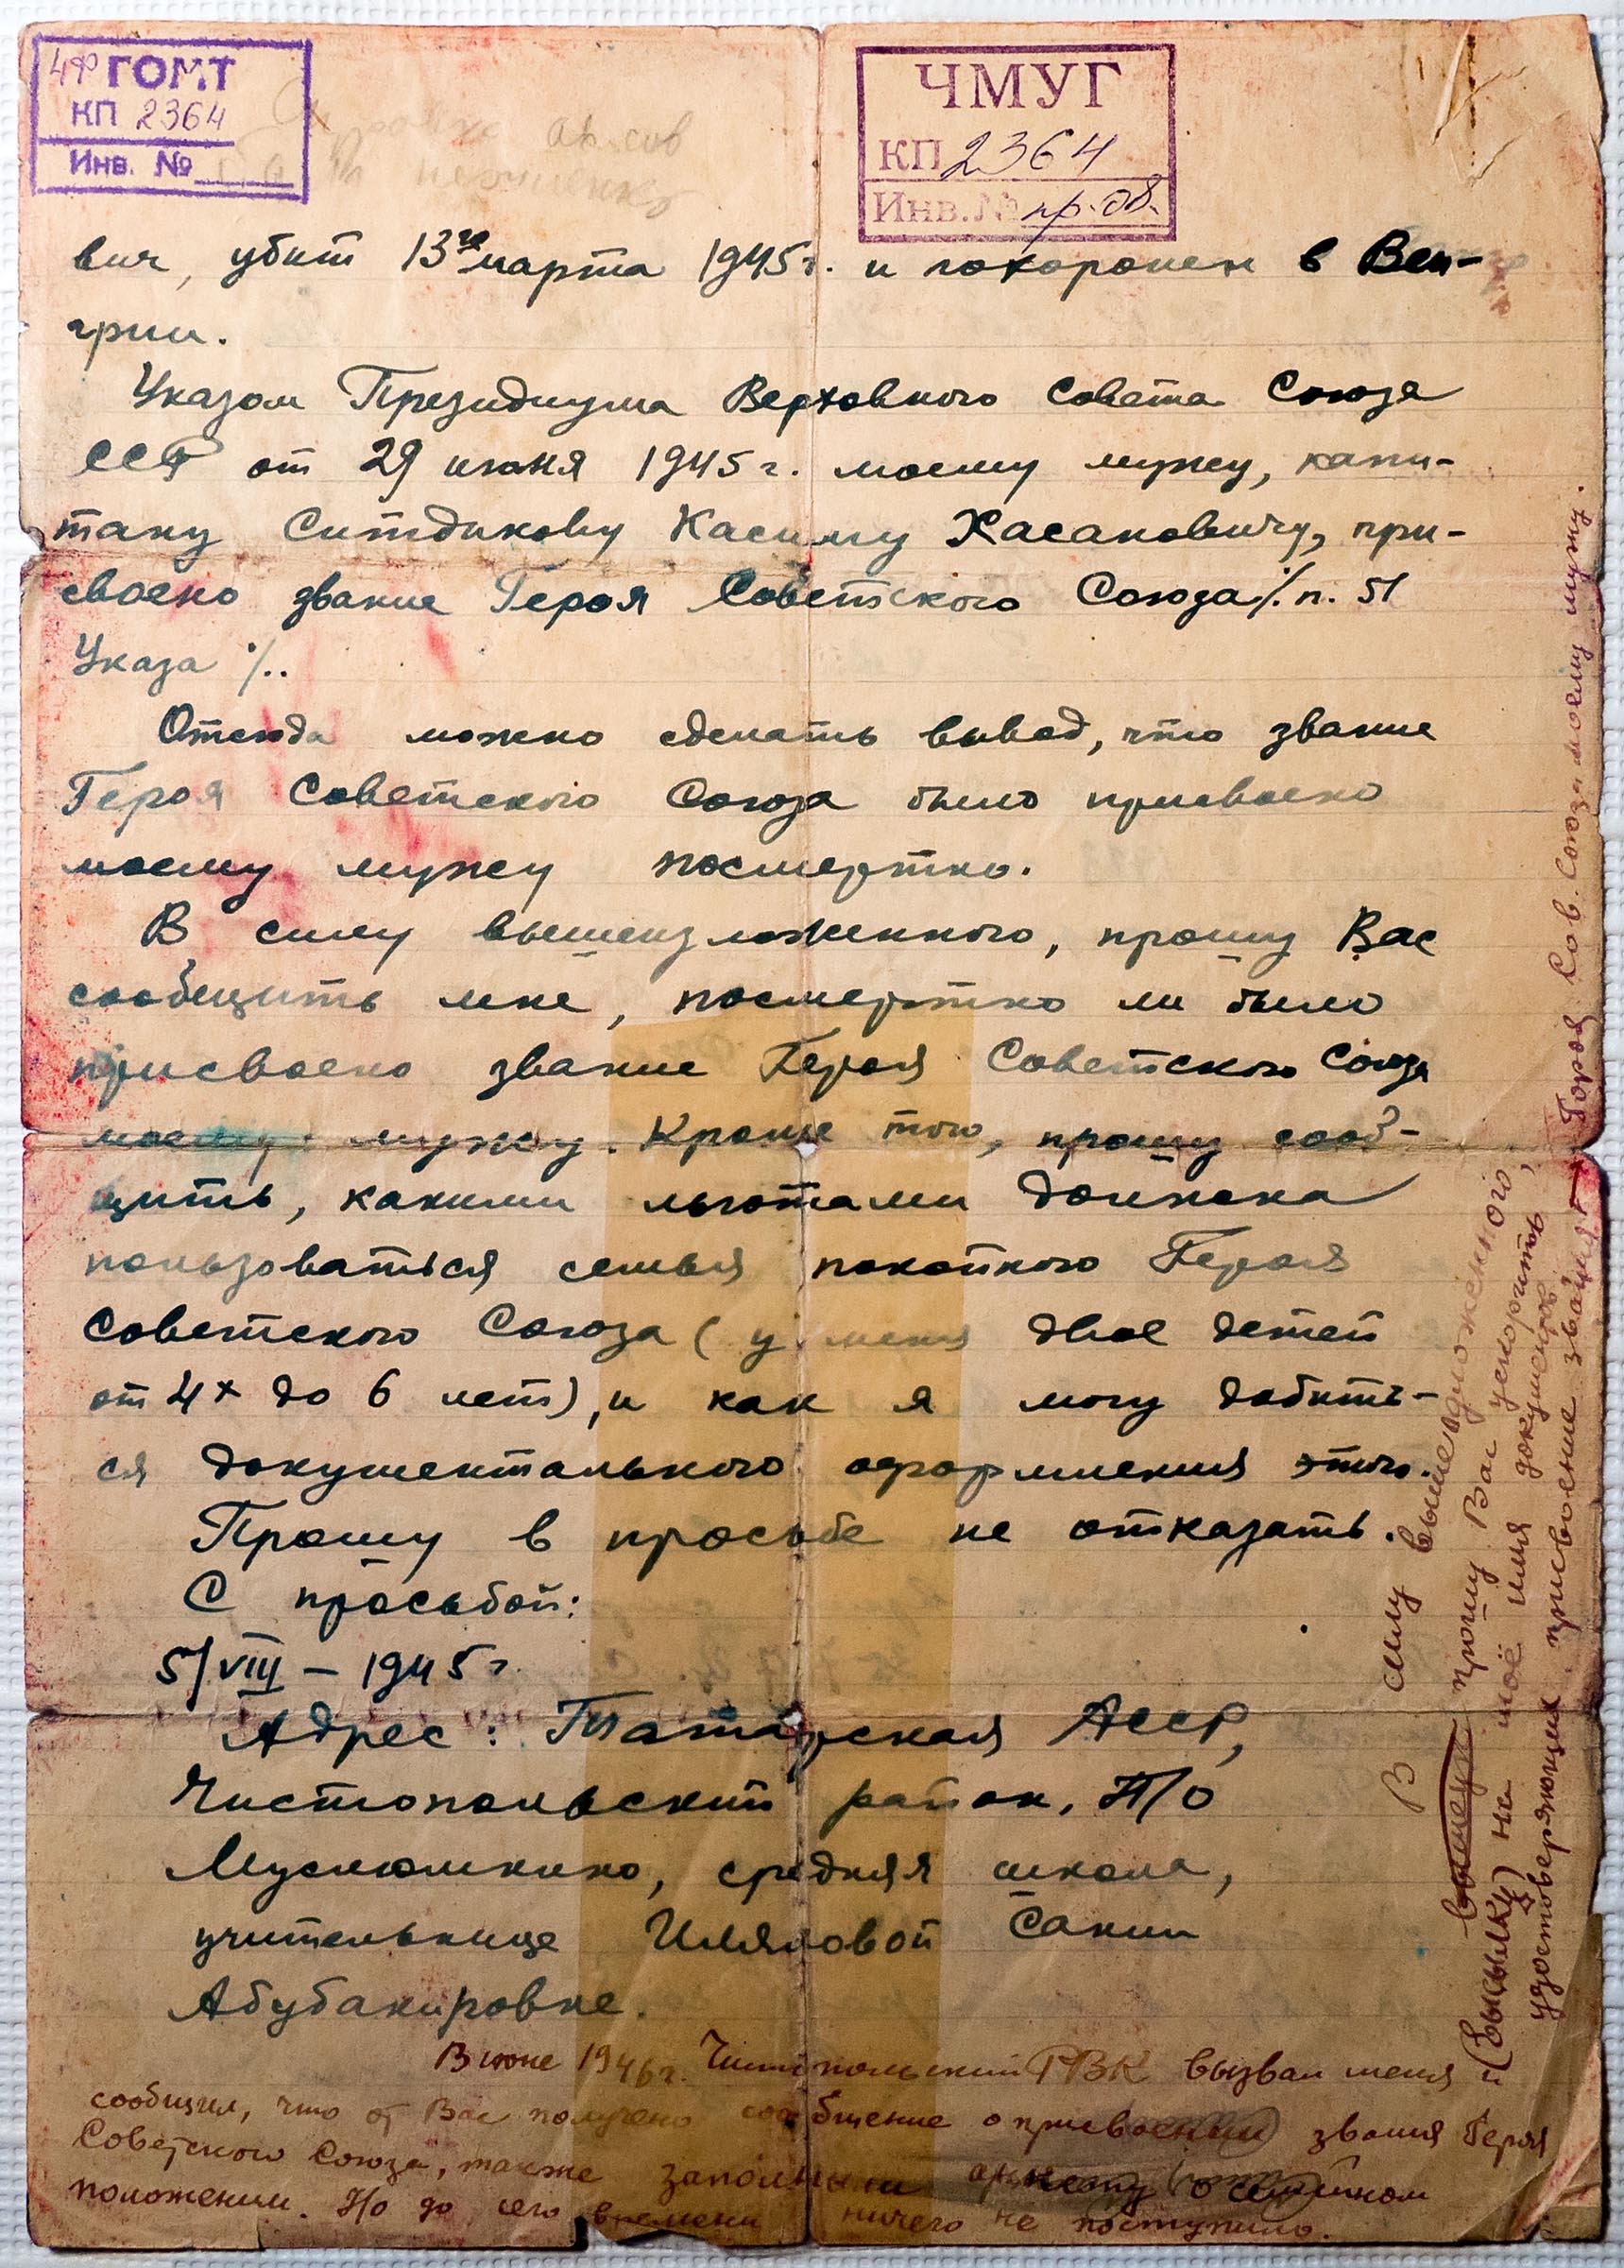 ЧФ ГОМТ
КП 2364
Инв. №
ЧМУГ
КП 2364
Инв. № пр-об.
вич, убит 13го марта 1945г. и похоронен в Вен-
грии.
Указом Президиума Верховного Совета Союза
ССР от 29 июня 1945 г. моему мужу, капи-
тану Ситдикову Касиму Хасановичу, при-
своено звание Героя Советского Союза ·/. п. 51
Указа ·/..
Отсюда можно сделать вывод, что звание
Героя Советского Союза было присвоено
моему мужу посмертно.
В силу вышеизложенного, прошу Вас
сообщить мне, посмертно ли было
присвоено звание Героя Советского Союза
моему мужу. Кроме того, прошу сооб-
щить, какими льготами должна
пользоваться семья покойного Героя
Советского Союза (у меня двое детей
от 4х до 6 лет), и как я могу добить-
ся документального оформления этого.
Прошу в просьбе не отказать.
С просьбой:
5/VIII – 1945 г.
Адрес: Татарская АССР,
Чистопольский район, П/о
Муслюмкино, средняя школа,
учительнице Илясовой Сании
Абубакировне.
В июне 1946 г. Чистопольский РВК вызвал меня и
сообщил, что от Вас получено сообщение о присвоении звания Героя
Советского Союза, также заполнили анкету о семейном
положении. Но до сего времени ничего не поступило.
В силу вышеизложенного,
прошу Вас ускорить
(высылку) на моё имя документов,
удостоверяющих присвоение звания
Героя Сов. Союза моему мужу.